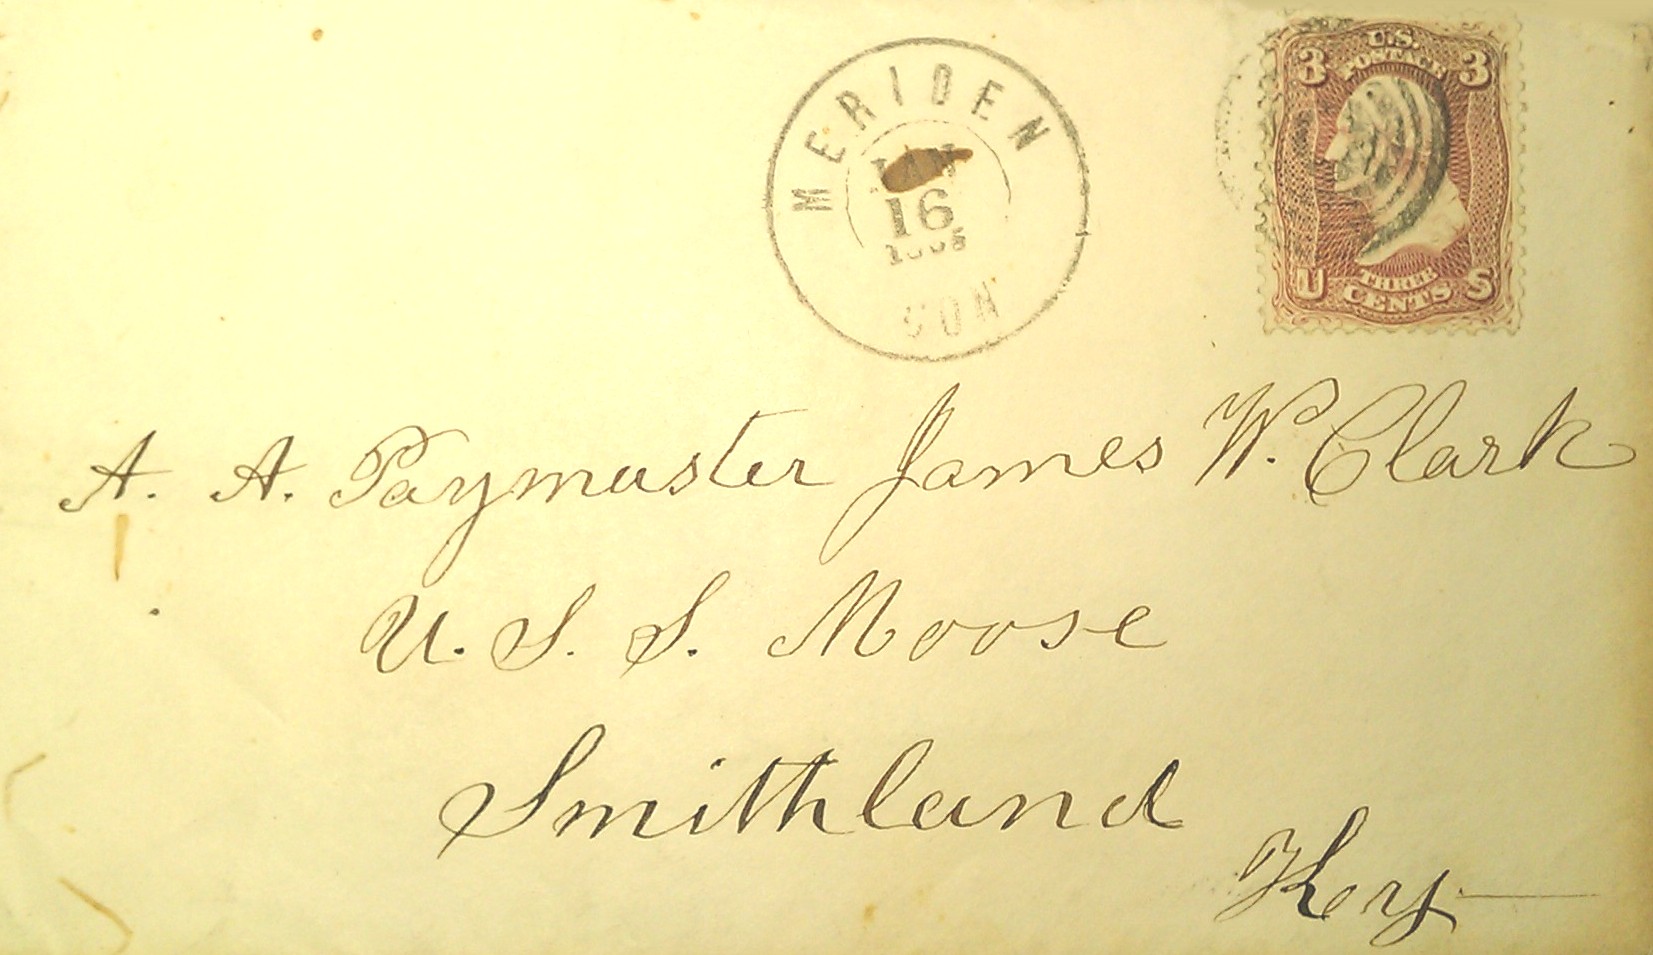 MERIDEN
16
CON
U.S.
POSTAGE
3 3
U THREE S
CENTS
A. A. Paymaster James W. Clark
U. S. S. Moose
Smithland
Key